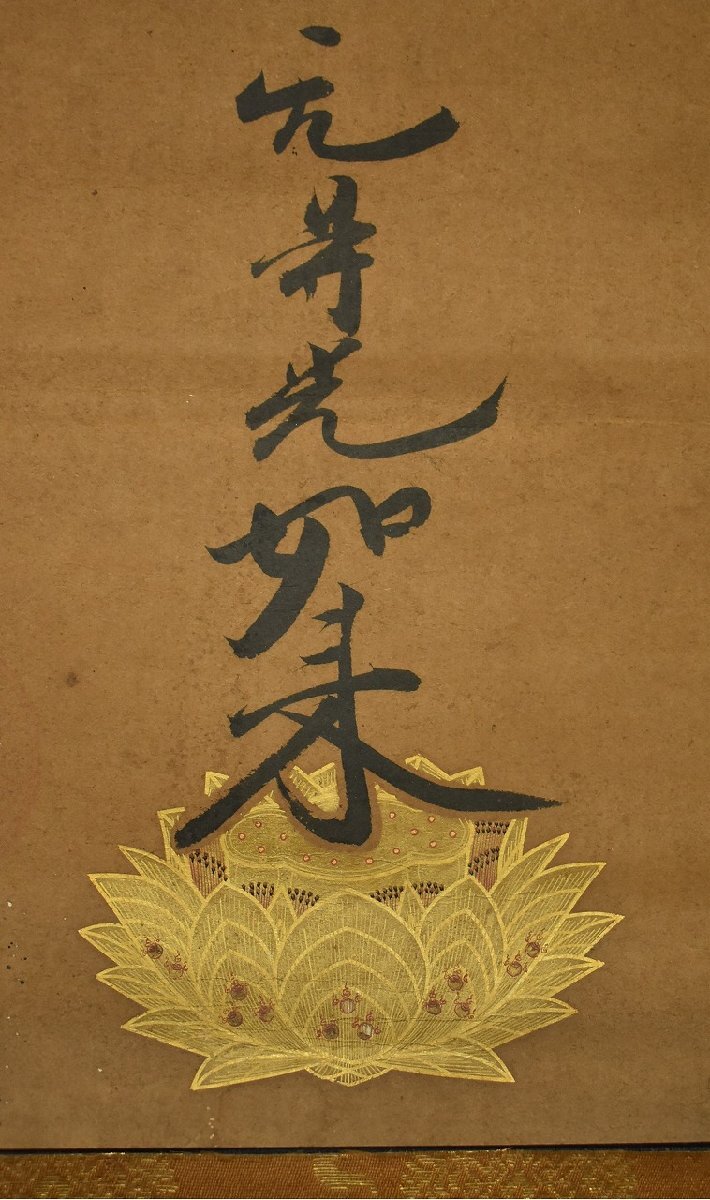 无㝵光如来